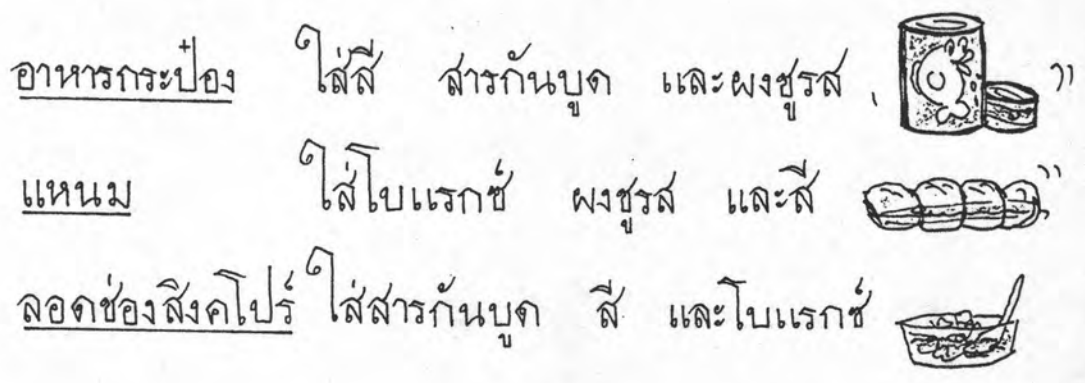 อาหารกระป๋อง ใส่สี สารกันบูด และผงชูรส
แหนม ใส่โบแรกซ์ ผงชูรส และสี
ลอดช่องสิงคโปร์ ใส่สารกันบูด สี และโบแรกซ์